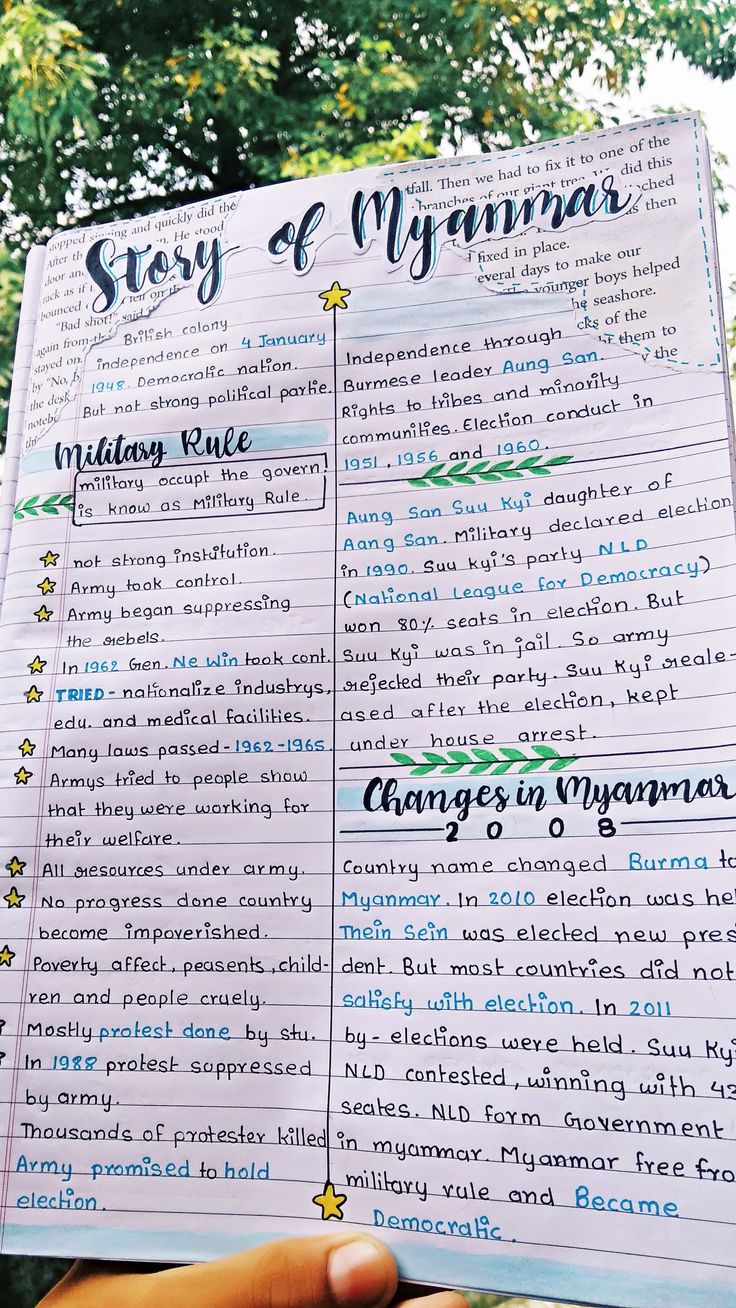 topped
and quickly did the
After th
n. He stood
door an
rack as if
fell on th
bounced
"Bad shot!" said
again from th
stayed on.
by "No,
the desk
noteb
tfall. Then we had to fix it to one of the
branches of our giant tree.
did this
ched
as then
fixed in place.
everal days to make our
younger boys helped
he seashore.
cks of the
them to
the
Story of Myanmar
British colony
independence on 4 January
1948. Democratic nation.
But not strong political partie.
Military Rule
military occupt the govern!
is know as Military Rule.
not strong institution.
Army took control.
Army began suppressing
the rebels.
In 1962 Gen. Ne Win took cont.
TRIED - nationalize industrys,
edu. and medical facilities.
Many laws passed - 1962-1965.
Armys tried to people show
that they were working for
their welfare.
All resources under army.
No progress done country
become impoverished.
Poverty affect, peasents, child-
ren and people cruely.
Mostly protest done by stu.
In 1988 protest suppressed
by army.
Thousands of protester killed
Army promised to hold
election.
Independence through
Burmese leader Aung San.
Rights to tribes and minority
communities. Election conduct in
1951, 1956 and 1960.
Aung San Suu Kyi daughter of
Aang San. Military declared election
in 1990. Suu Kyi's party NLD
(National League for Democracy)
won 80% seats in election. But
Suu Kyi was in jail. So army
rejected their party. Suu Kyi reale-
ased after the election, kept
under house arrest.
Changes in Myanmar
2008
Country name changed Burma to
Myanmar. In 2010 election was hel
Thein Sein was elected new pres
dent. But most countries did not
satisfy with election. In 2011
by- elections were held. Suu Kyi
NLD contested, winning with 43
seates. NLD form Government
in myammar. Myanmar free fro
military rule and Became
Democratic.